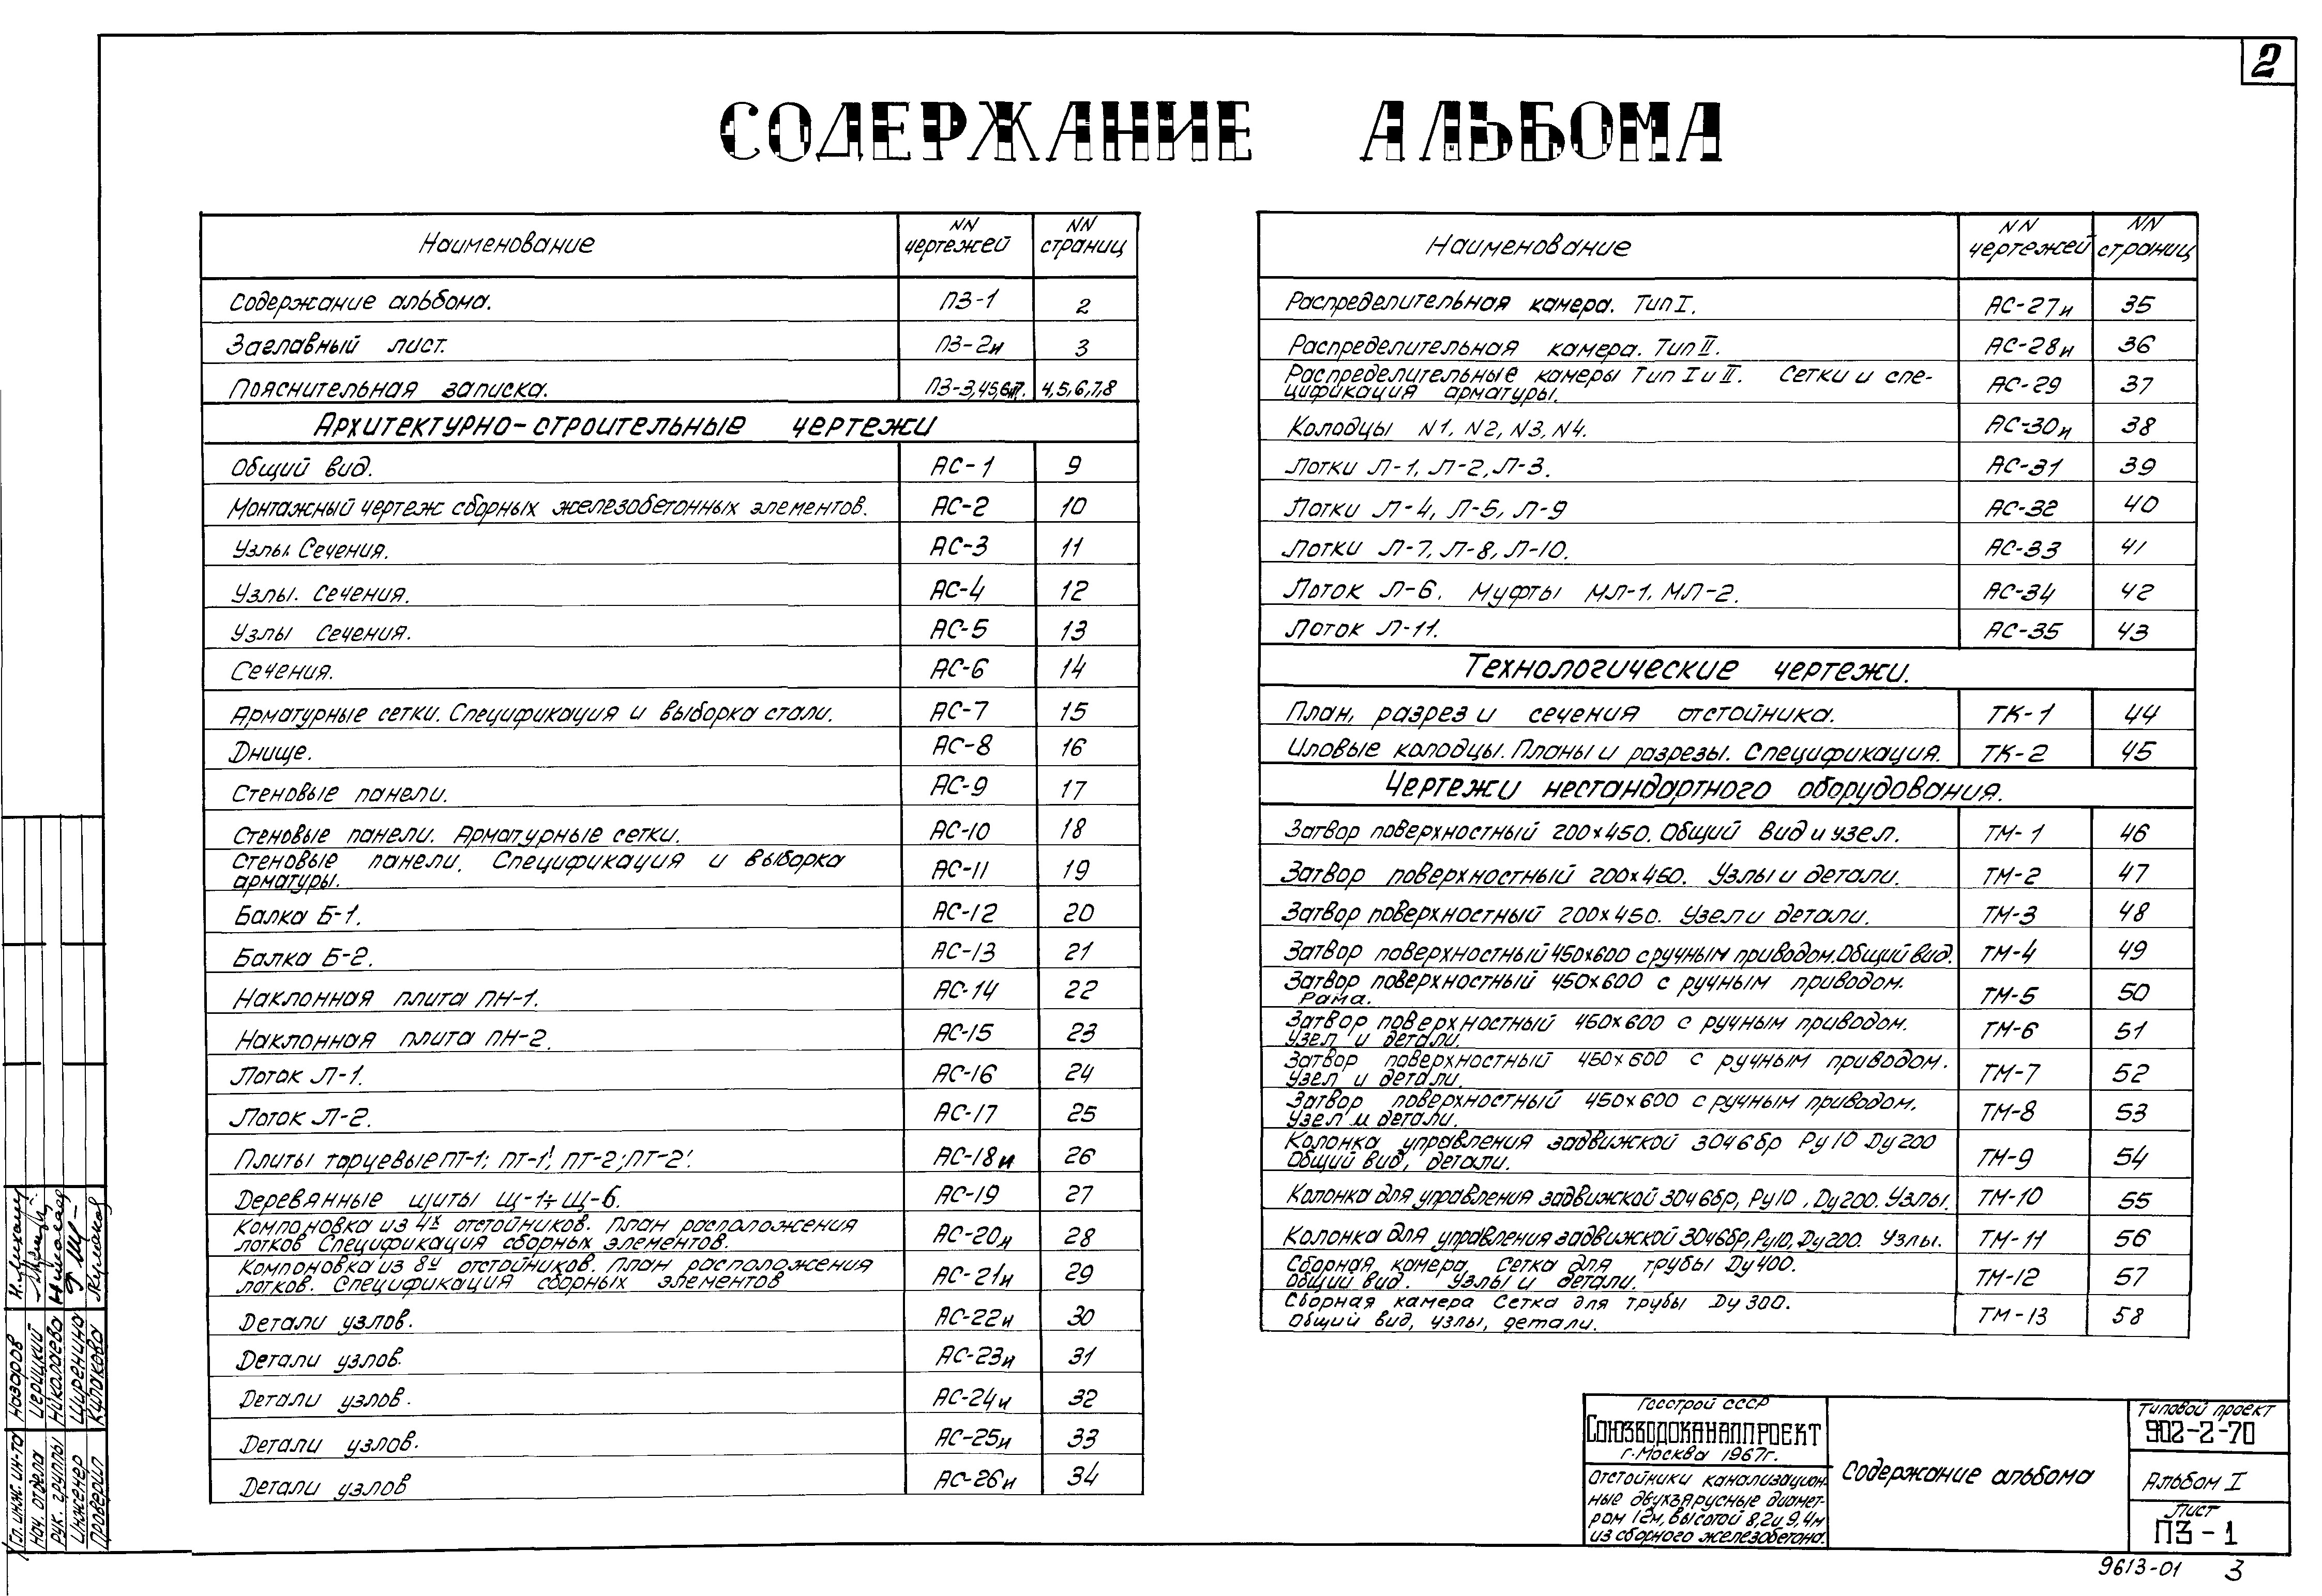 2
СОДЕРЖАНИЕ АЛЬБОМА
Наименование NN чертежей NN страниц
Содержание альбома. ПЗ-1 2
Заглавный лист. ПЗ-2и 3
Пояснительная записка. ПЗ-3,4,5,6и7. 4,5,6,7,8
Архитектурно-строительные чертежи
Общий вид. АС-1 9
Монтажный чертеж сборных железобетонных элементов. АС-2 10
Узлы. Сечения. АС-3 11
Узлы. Сечения. АС-4 12
Узлы Сечения. АС-5 13
Сечения. АС-6 14
Арматурные сетки. Спецификация и выборка стали. АС-7 15
Днище. АС-8 16
Стеновые панели. АС-9 17
Стеновые панели. Арматурные сетки. АС-10 18
Стеновые панели. Спецификация и выборка
арматуры. АС-11 19
Балка Б-1. АС-12 20
Балка Б-2. АС-13 21
Наклонная плита ПН-1. АС-14 22
Наклонная плита ПН-2. АС-15 23
Лоток Л-1. АС-16 24
Лоток Л-2. АС-17 25
Плиты торцевые ПТ-1; ПТ-1'; ПТ-2; ПТ-2'. АС-18и 26
Деревянные щиты Щ-1÷Щ-6. АС-19 27
Компоновка из 4х отстойников. План расположения
лотков Спецификация сборных элементов. АС-20и 28
Компоновка из 8и отстойников. План расположения
лотков. Спецификация сборных элементов АС-21и 29
Детали узлов. АС-22и 30
Детали узлов. АС-23и 31
Детали узлов. АС-24и 32
Детали узлов. АС-25и 33
Детали узлов АС-26и 34
Наименование NN чертежей NN страниц
Распределительная камера. Тип I. АС-27и 35
Распределительная камера. Тип II. АС-28и 36
Распределительные камеры Тип I и II. Сетки и спе-
цификация арматуры. АС-29 37
Колодцы N1, N2, N3, N4. АС-30и 38
Лотки Л-1, Л-2, Л-3. АС-31 39
Лотки Л-4, Л-5, Л-9 АС-32 40
Лотки Л-7, Л-8, Л-10. АС-33 41
Лоток Л-6. Муфты МЛ-1, МЛ-2. АС-34 42
Лоток Л-11. АС-35 43
Технологические чертежи.
План, разрез и сечения отстойника. ТК-1 44
Иловые колодцы. Планы и разрезы. Спецификация. ТК-2 45
Чертежи нестандартного оборудования.
Затвор поверхностный 200х450. Общий вид и узел. ТМ-1 46
Затвор поверхностный 200х450. Узлы и детали. ТМ-2 47
Затвор поверхностный 200х450. Узел и детали. ТМ-3 48
Затвор поверхностный 450х600 с ручным приводом. Общий вид. ТМ-4 49
Затвор поверхностный 450х600 с ручным приводом.
Рама. ТМ-5 50
Затвор поверхностный 450х600 с ручным приводом.
Узел и детали. ТМ-6 51
Затвор поверхностный 450х600 с ручным приводом.
Узел и детали. ТМ-7 52
Затвор поверхностный 450х600 с ручным приводом.
Узел и детали. ТМ-8 53
Колонка управления задвижкой 30ч6бр Ру10 Ду200
Общий вид, детали. ТМ-9 54
Колонка для управления задвижкой 30ч6бр, Ру10, Ду200. Узлы. ТМ-10 55
Колонка для управления задвижкой 30ч6бр, Ру10, Ду200. Узлы. ТМ-11 56
Сборная камера Сетка для трубы Ду400.
Общий вид. Узлы и детали. ТМ-12 57
Сборная камера Сетка для трубы Ду300.
Общий вид, узлы, детали. ТМ-13 58
Гл. инж. ин-та Назаров
Нач. отдела Церицкий
Рук. группы Николаева
Инженер Ширенина
Проверил Кулакова
Госстрой СССР
СОЮЗВОДОКАНАЛПРОЕКТ
г. Москва 1967г.
Отстойники канализацион-
ные двухъярусные диамет-
ром 12м, высотой 8,2 и 9,4м
из сборного железобетона.
Содержание альбома
Типовой проект
902-2-70
Альбом I
Лист
ПЗ-1
9613-01 3